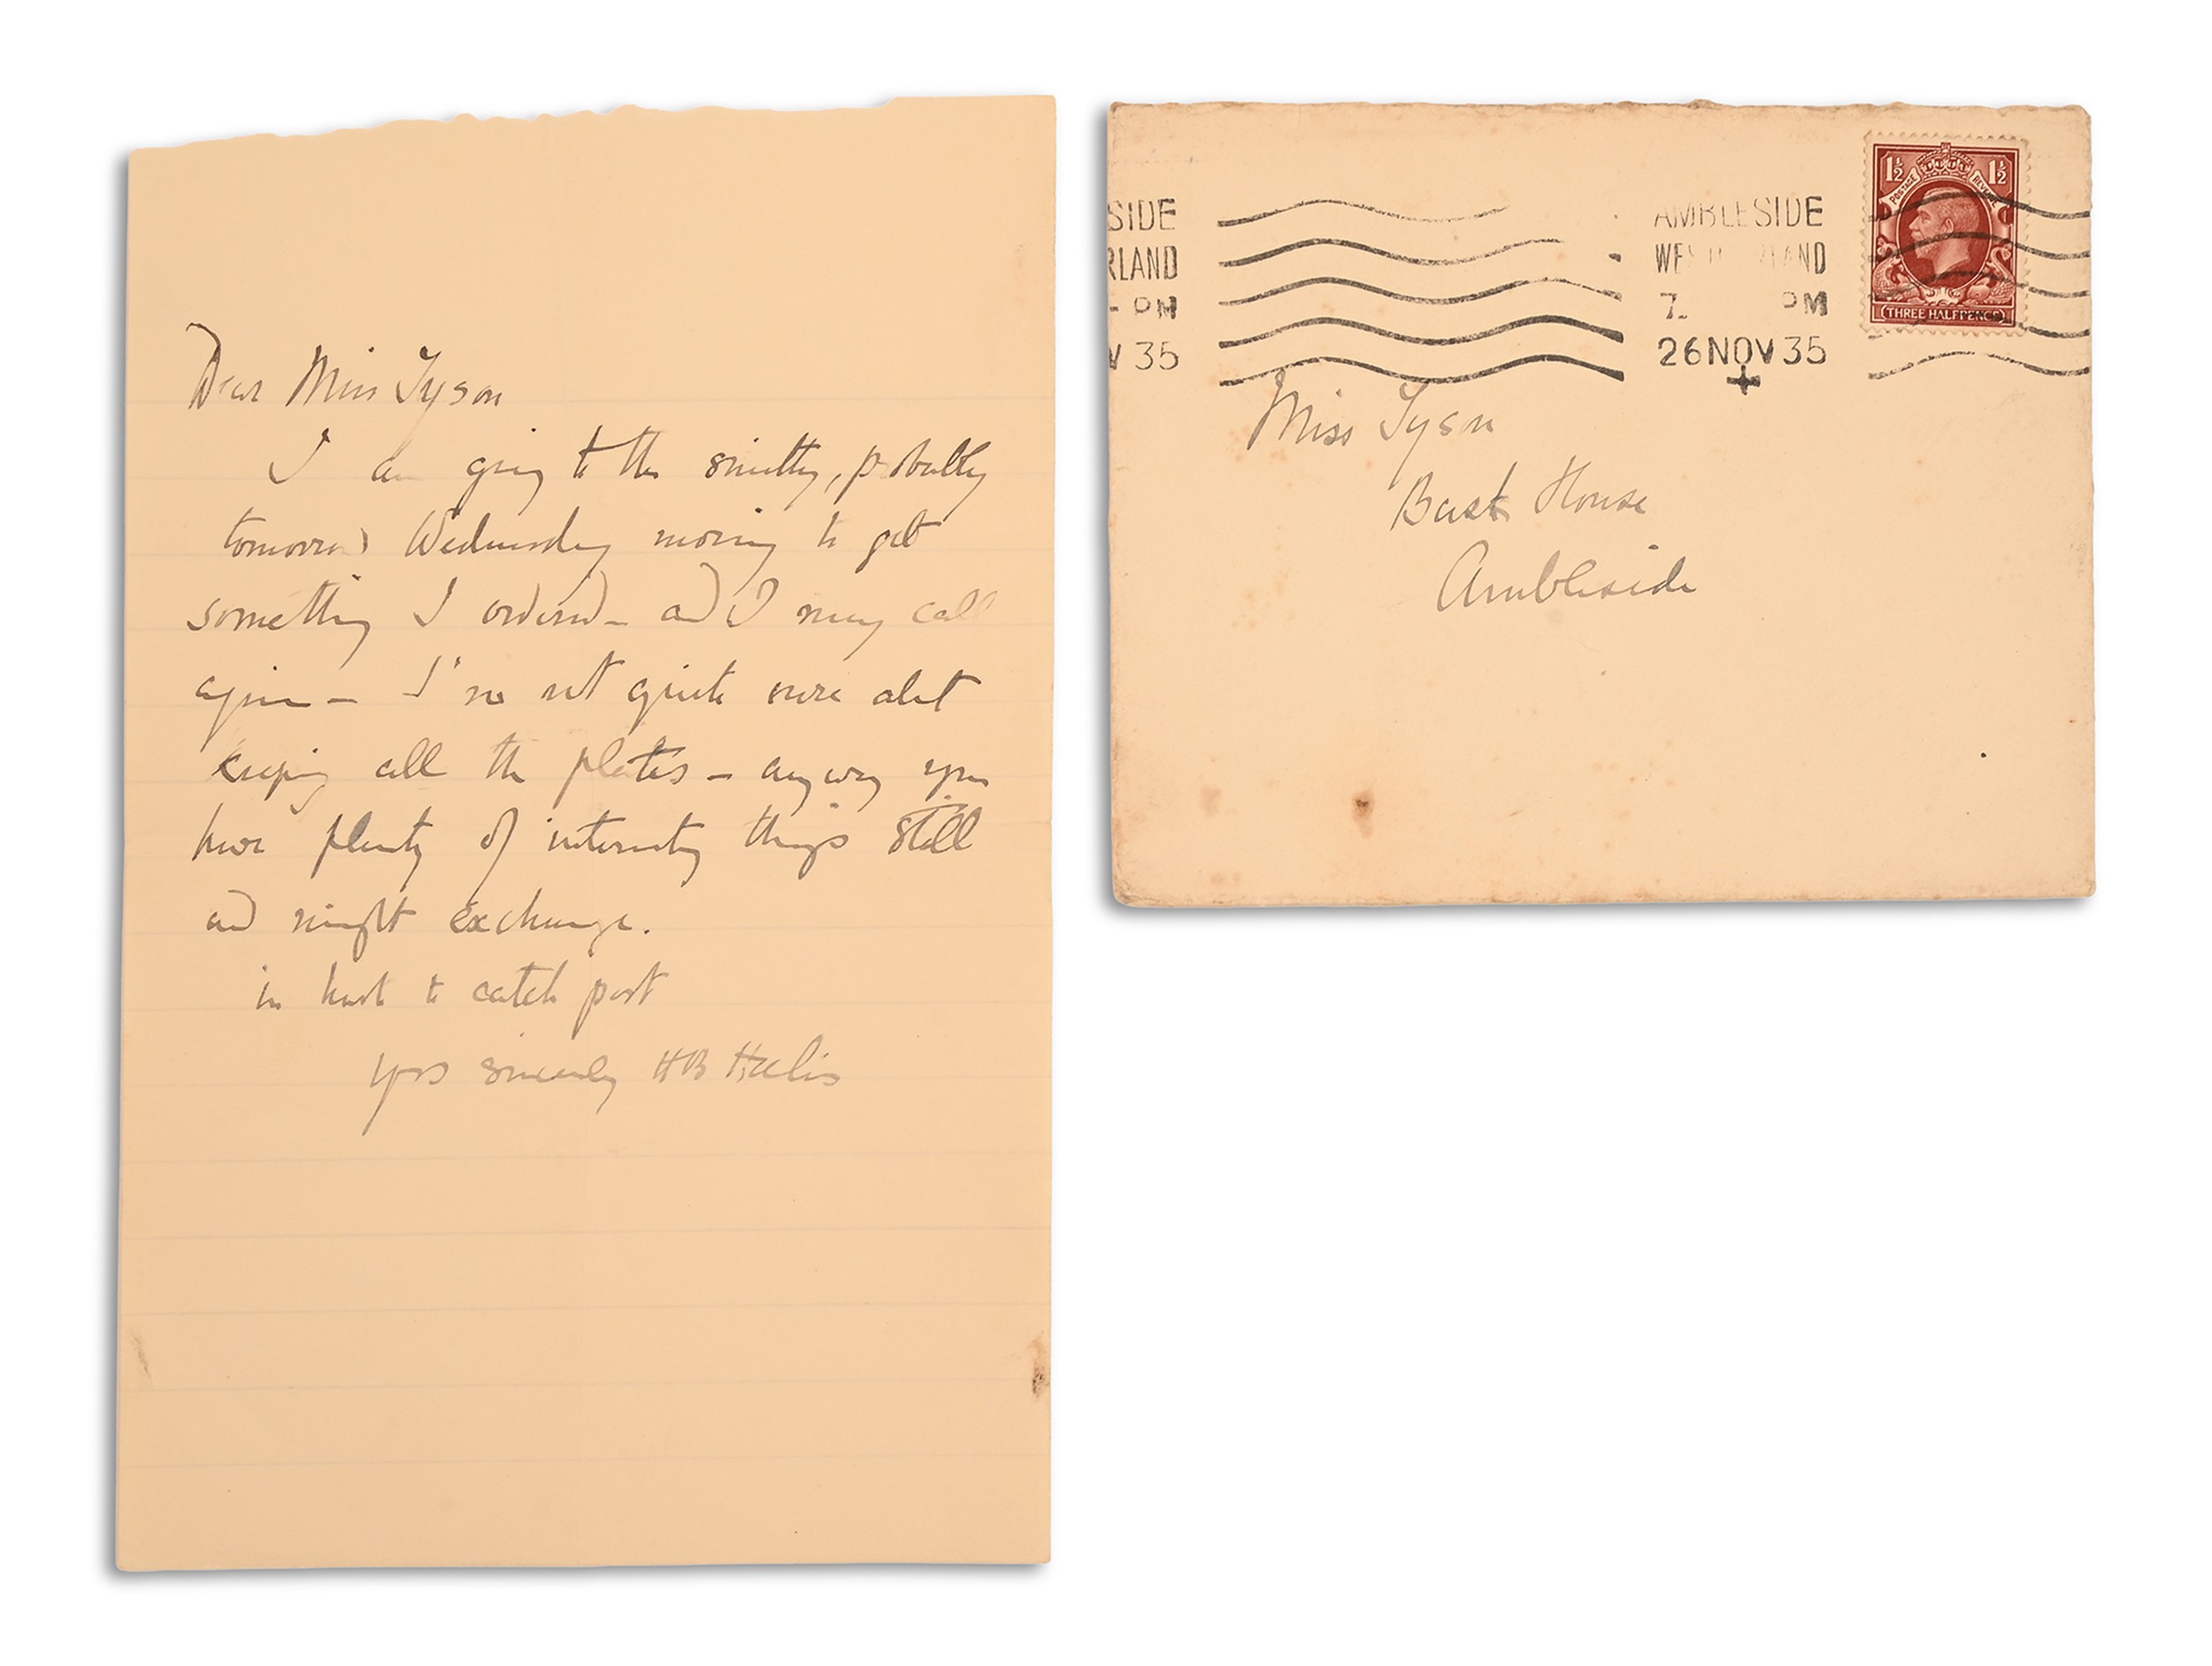 Dear Miss Tyson
I am going to the smithy, probably
tomorrow Wednesday morning to get
something I ordered - and I may call
again - I'm not quite sure about
keeping all the plates - anyway you
have plenty of interesting things still
and might exchange.
in haste to catch post
yrs sincerely HB Heelis
SIDE
RLAND
- PM
V 35
AMBLESIDE
WES RLAND
7- PM
26 NOV 35
1½ 1½
POSTAGE REVENUE
THREE HALFPENCE
Miss Tyson
House
Ambleside